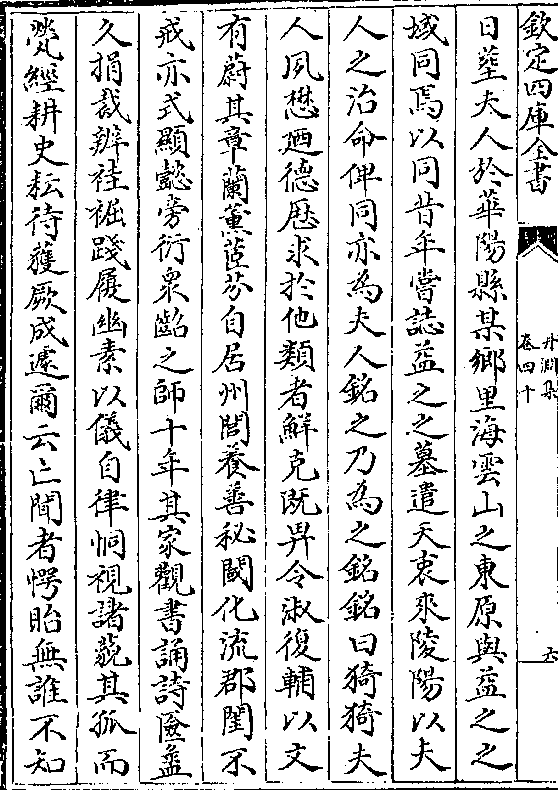 欽定四庫全書
丹淵集
卷四十
六
日葬夫人於華陽縣某鄉里海雲山之東原與益之之
域同焉以同昔年嘗誌益之之墓遣天衷來陵陽以夫
人之治命俾同亦為夫人銘之乃為之銘銘曰猗猗夫
人夙懋廼德歴求於他類者鮮克既畀令淑復輔以文
有蔚其章蘭薫茝芬自居州閭養善秘閾化流郡閨不
戒亦式顯懿旁衍衆齠之師十年其家觀書誦詩匳盝
久捐裁辦袿裾踐履幽素以儀自律恫視諸藐其孤而
㷀經耕史耘待穫厥成遽爾云亡聞者愕眙無誰不知